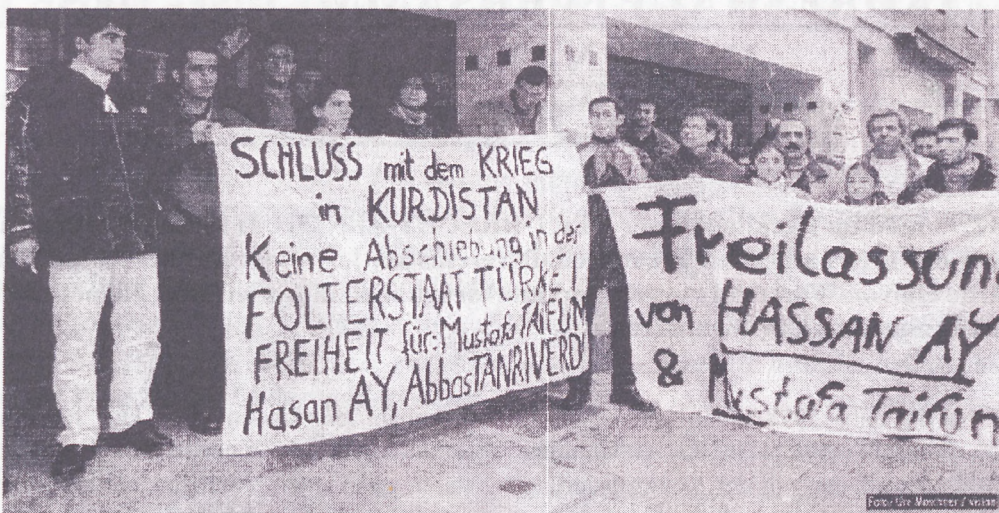 SCHLUSS mit dem KRIEG
in KURDISTAN
Keine Abschiebung in der
FOLTERSTAAT TÜRKEI
FREIHEIT für: Mustafa TAIFUN
Hasan AY, Abbas TANRIVERDI
Freilassun
von HASSAN AY
& Mustafa Taifun
Foto: